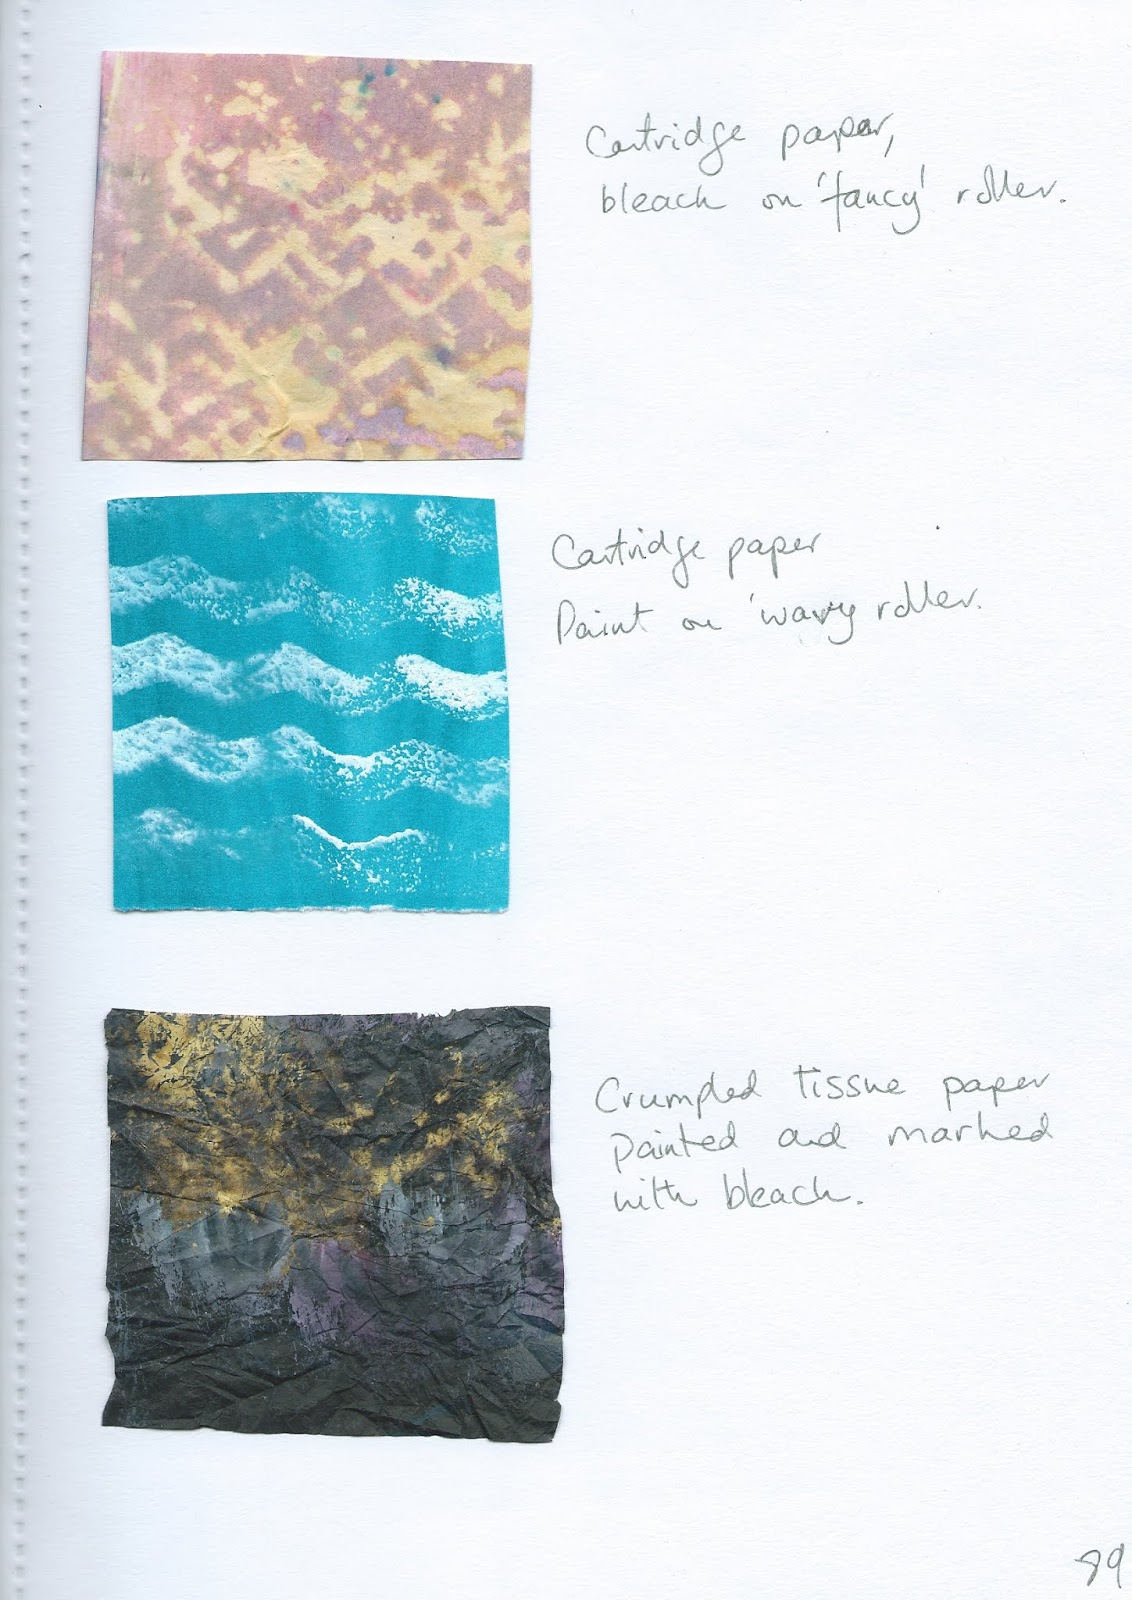 Cartridge paper,
bleach on 'fancy' roller.
Cartridge paper
Paint on 'wavy roller.
Crumpled tissue paper
painted and marked
with bleach.
89